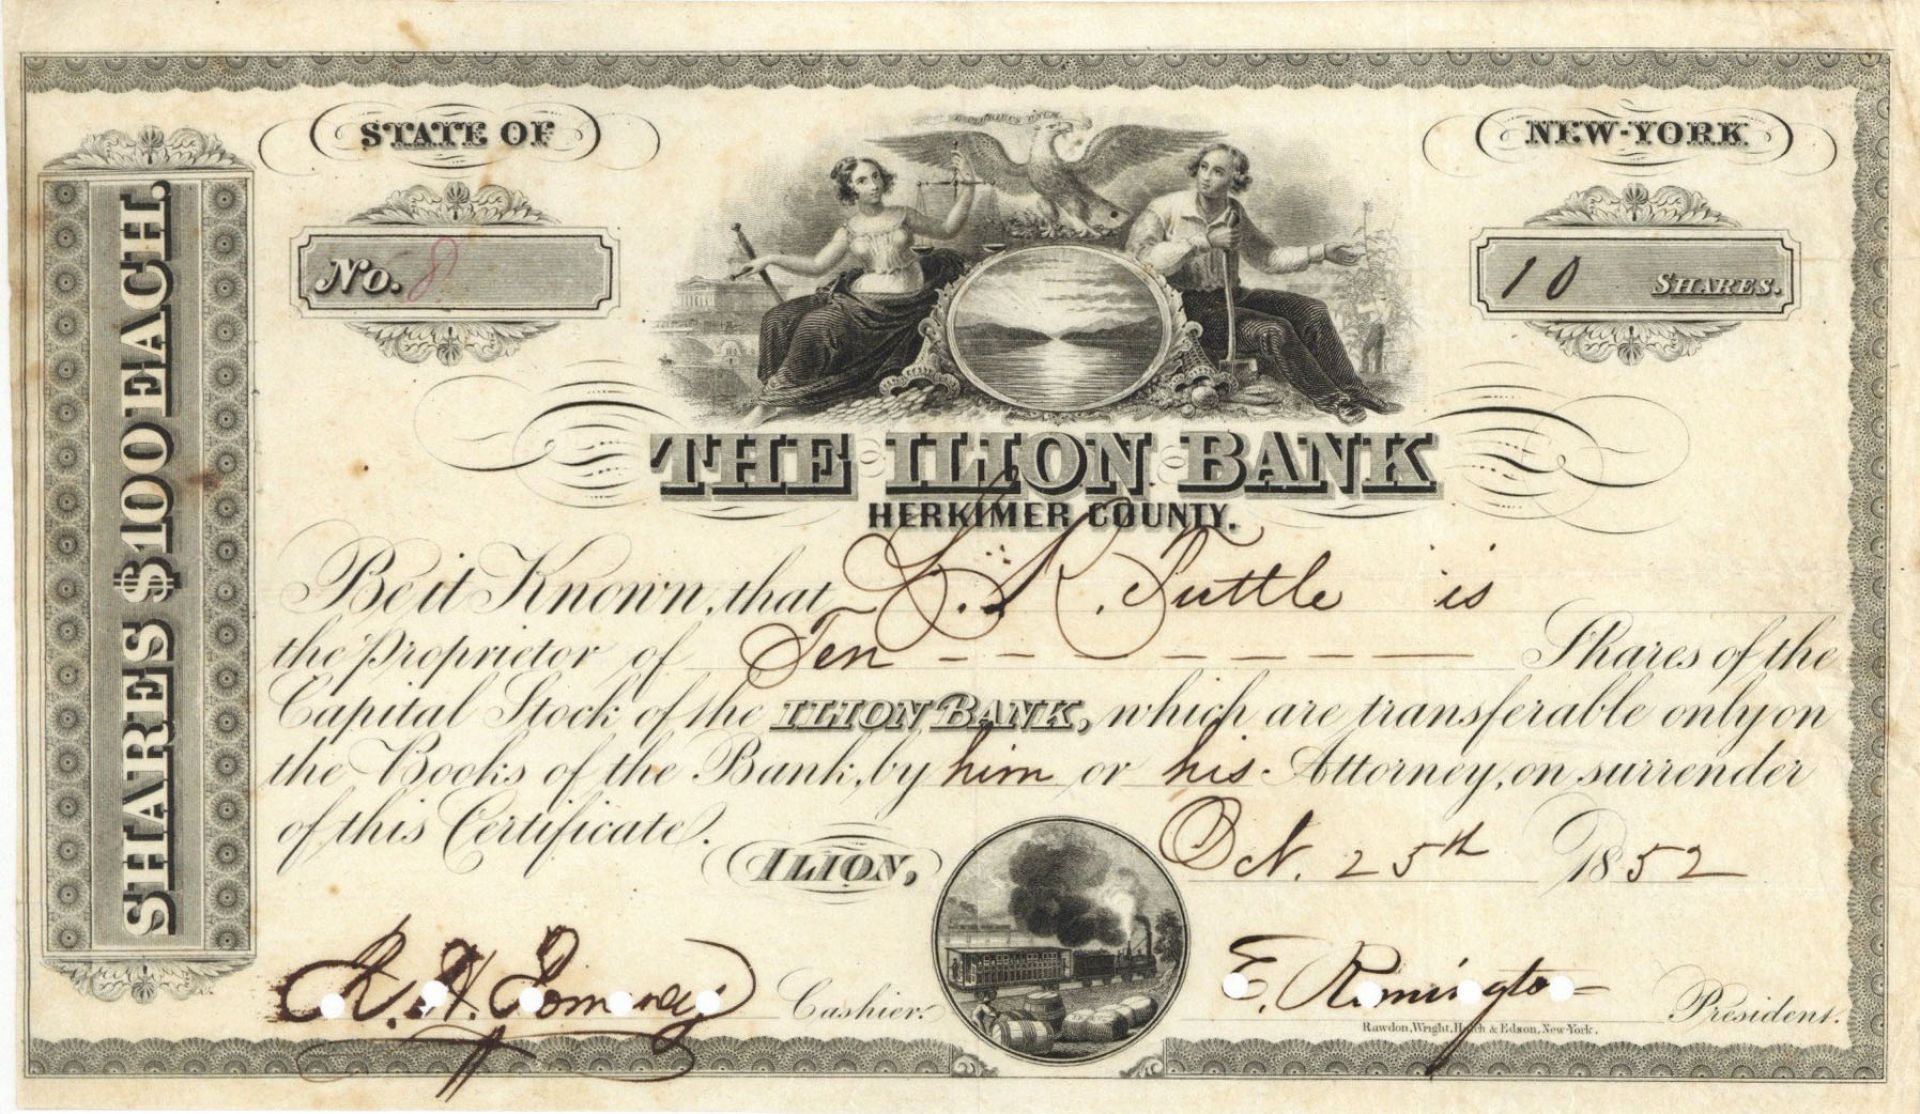 STATE OF
NEW-YORK
E PLURIBUS UNUM
No. 8
10 SHARES.
SHARES $100 EACH.
THE ILION BANK
HERKIMER COUNTY.
Be it Known, that Tuttle is
the Proprietor of Ten Shares of the
Capital Stock of the ILION BANK, which are transferable only on
the Books of the Bank, by him or his Attorney, on surrender
of this Certificate.
ILION, Oct. 25th 1852
Cashier.
E. Remington President.
Rawdon, Wright, Hatch & Edson, New-York.